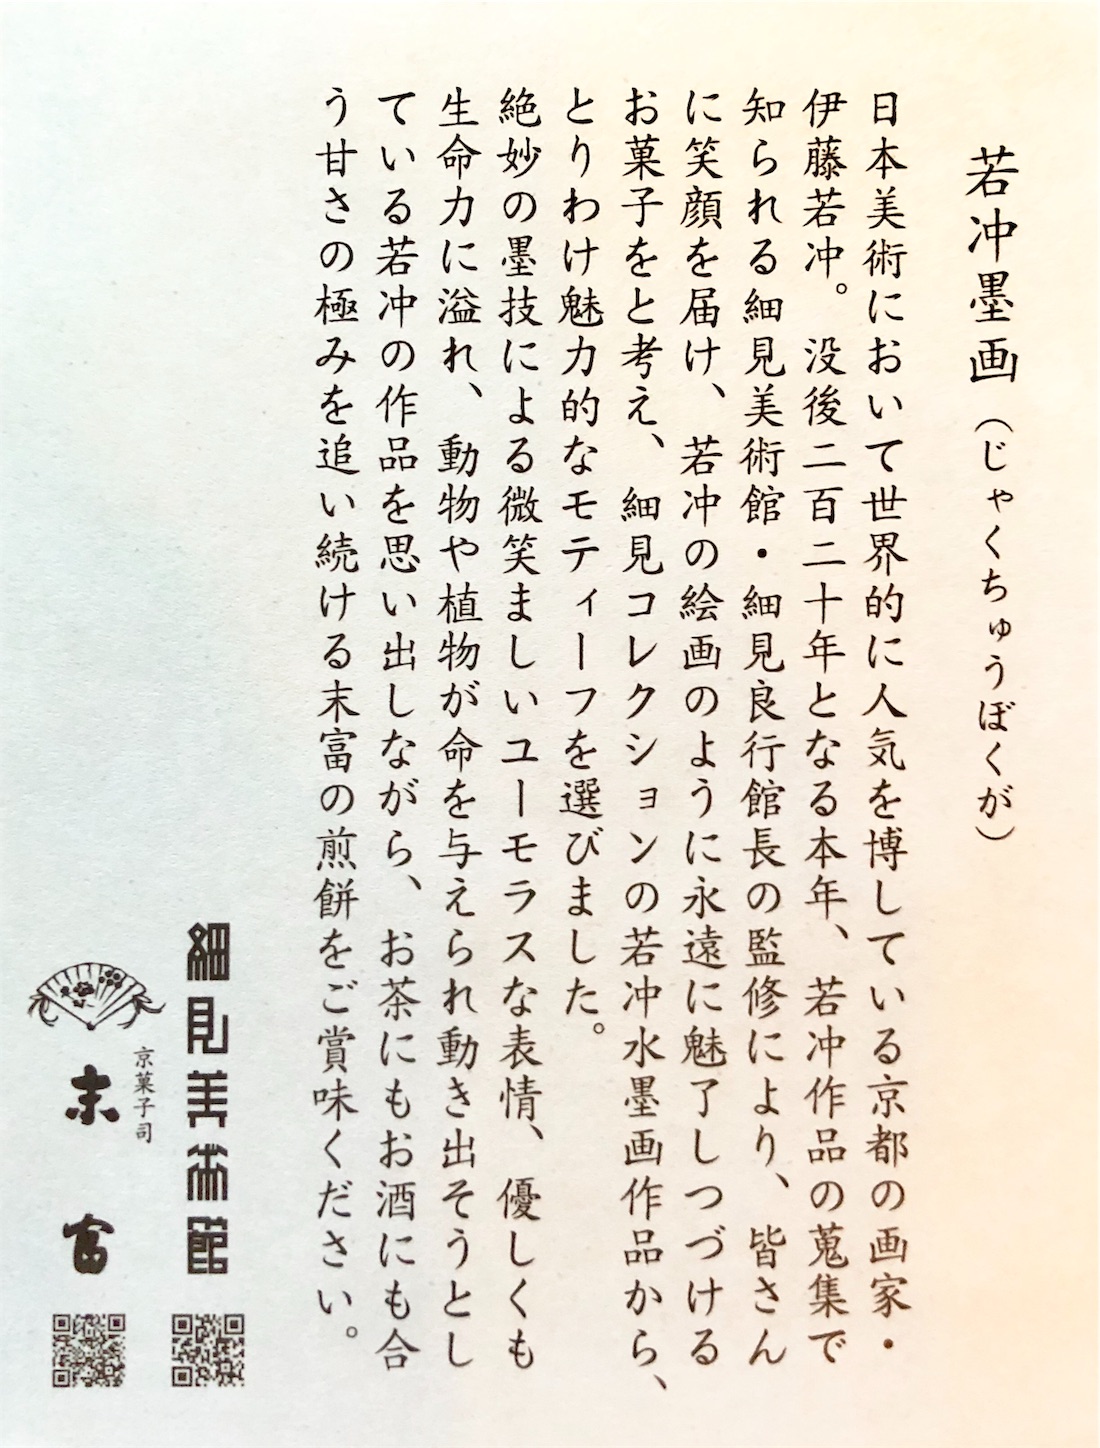 若冲墨画（じゃくちゅうぼくが）
日本美術において世界的に人気を博している京都の画家・
伊藤若冲。没後二百二十年となる本年、若冲作品の蒐集で
知られる細見美術館・細見良行館長の監修により、皆さん
に笑顔を届け、若冲の絵画のように永遠に魅了しつづける
お菓子をと考え、細見コレクションの若冲水墨画作品から、
とりわけ魅力的なモティーフを選びました。
絶妙の墨技による微笑ましいユーモラスな表情、優しくも
生命力に溢れ、動物や植物が命を与えられ動き出そうとし
ている若冲の作品を思い出しながら、お茶にもお酒にも合
う甘さの極みを追い続ける末富の煎餅をご賞味ください。
細見美術館
京菓子司
末富